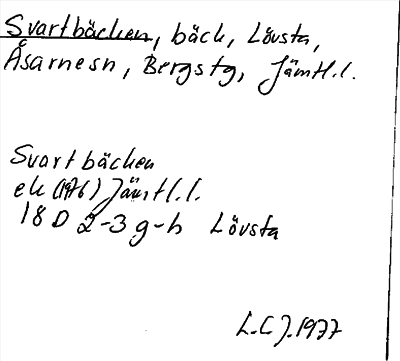 Svartbäcken, bäck, Lövsta,
Åsarnesn, Bergstg, Jämtl.l.
Svartbäcken
ek (1976) Jämtl.l.
18 D 2-3 g-h Lövsta
L.C.J. 1977